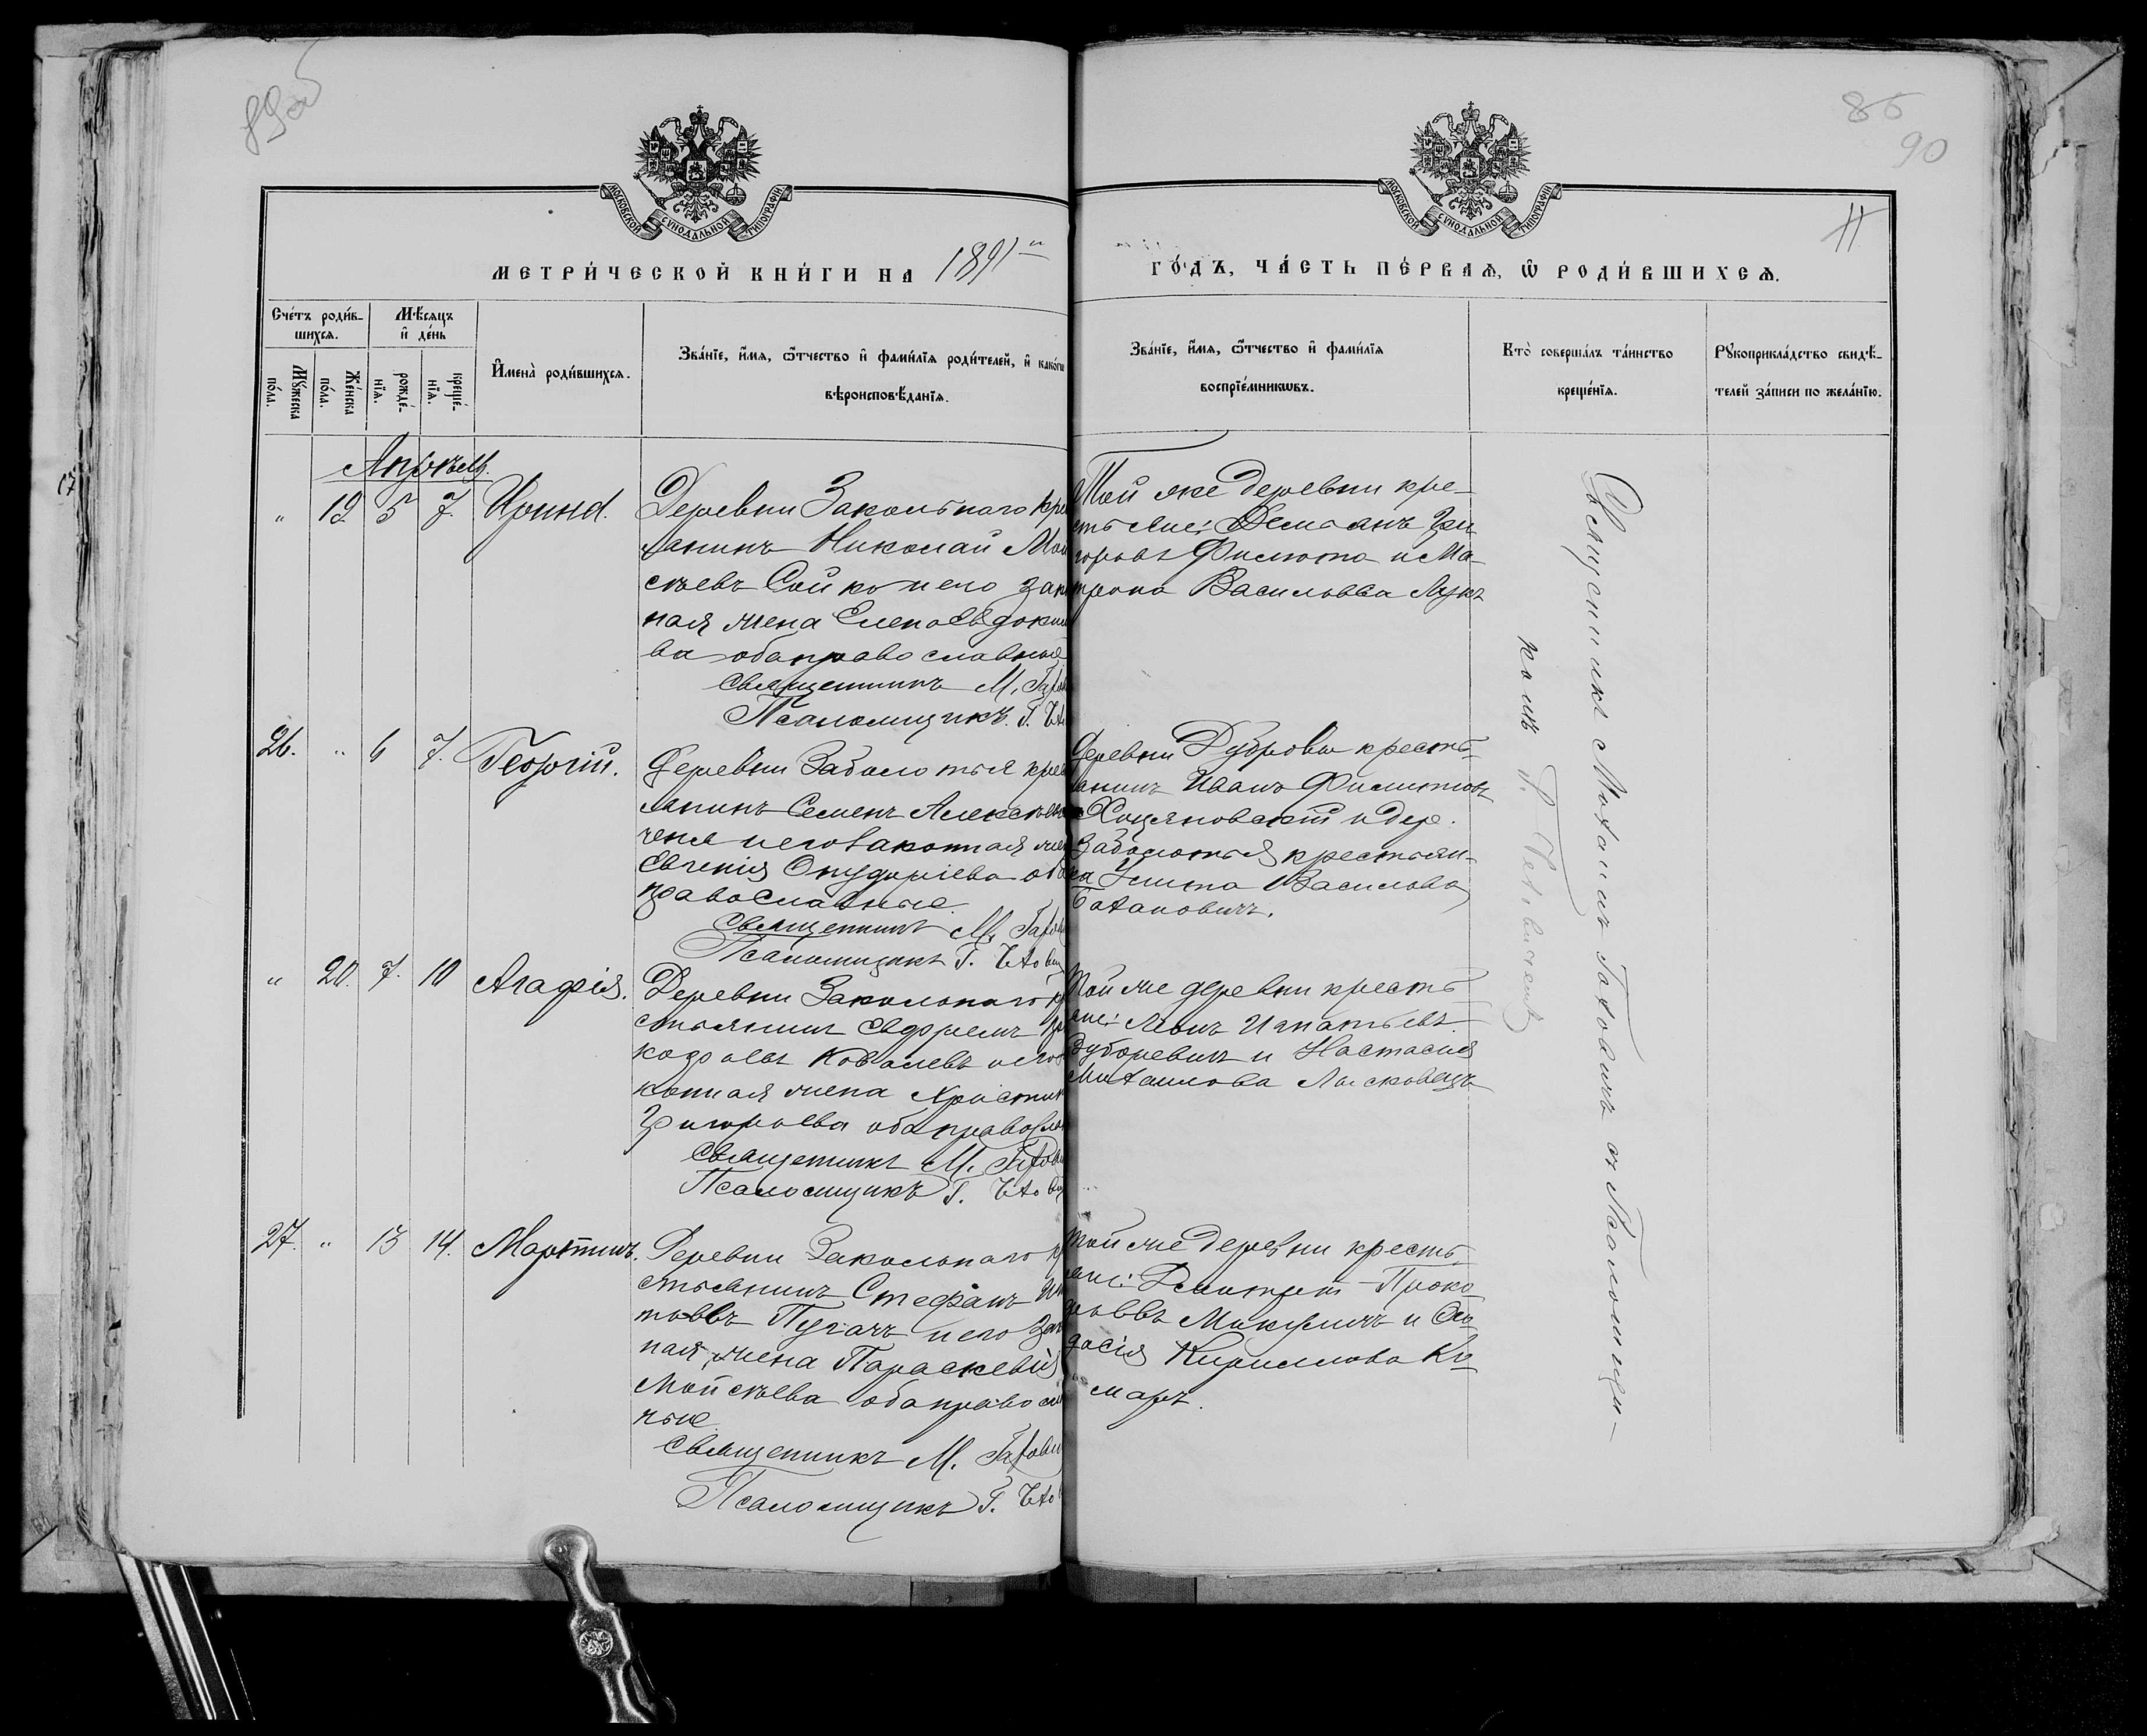 89об
86
90
11
МОСКОВСКОЙ СѴНОДАЛЬНОЙ ТИПОГРАФІИ
МОСКОВСКОЙ СѴНОДАЛЬНОЙ ТИПОГРАФІИ
МЕТРИ́ЧЕСКОЙ КНИ́ГИ НА 1891й
ГО́ДЪ, ЧА́СТЬ ПЕ́РВАѦ, Ѡ҆ РОДИ́ВШИХСѦ.
Сче́тъ роди́в-
шихсѧ.
Мꙋжеска
по́ла.
Же́нска
по́ла.
Мѣ́сѧцъ
и҆ де́нь
рожде́-
нїѧ.
креще́-
нїѧ.
И҆мена̀ роди́вшихсѧ.
Зва́нїе, и҆́мѧ, ѻ҆́тчество и҆ фами́лїѧ роди́телей, и҆ како́гѡ
вѣроисповѣ́данїѧ.
Зва́нїе, и҆́мѧ, ѻ҆́тчество и҆ фами́лїѧ
воспрїе́мникѡвъ.
Кто̀ соверша́лъ та́инство
креще́нїѧ.
Рꙋкоприкла́дство свидѣ́-
телей за́писи по жела́нїю.
Апрѣль.
" 19. 5 7. Ирина.
Деревни Закольнаго кре
янинъ Николай Мои
сѣевъ Сойко и его зако
ная жена Елена Евдоким
ва оба православные
Священникъ М.
Псаломщикъ Г.
Той же деревни кре-
стьяне: Демьянъ Гри
горьевъ Филюта и Ма-
трона Васильева Лукъ
26. " 6 7. Георгій.
Деревни Заболотья крес
янинъ Семенъ Алексѣев
и его законная жен
Евгенія оба
православные.
Священникъ М.
Псаломщикъ Г.
Деревни Дубровы кресть
янинъ Иванъ Филиповъ
и дер.
Заболотья крестьян-
ка Улита Василева
Баханович.
" 20. 7. 10 Агафія.
Деревни Закольнаго кр
стьянинъ
Ковалевъ и его за
конная жена Христин
Григорьева оба правосла
Священникъ М.
Псаломщикъ Г.
Той же деревни кресть
яне: Леонъ Игнатьевъ
и Настасия
Михаилова Лысковецъ
27. " 13 14. Мартинъ.
Деревни Закольнаго кр
стьянинъ Стефанъ Иг
тьевъ Пугачъ и его зак
ная жена Параскевія
Моисѣева оба правосла
ные
Священникъ М.
Псаломщикъ Г.
Той же деревни кресть
яне: Димитрій Проко
фьевъ Микуличъ и Ѳео
досія Кирилова Ко
маръ.
Священникъ Михаилъ съ Псаломщи-
комъ Г.